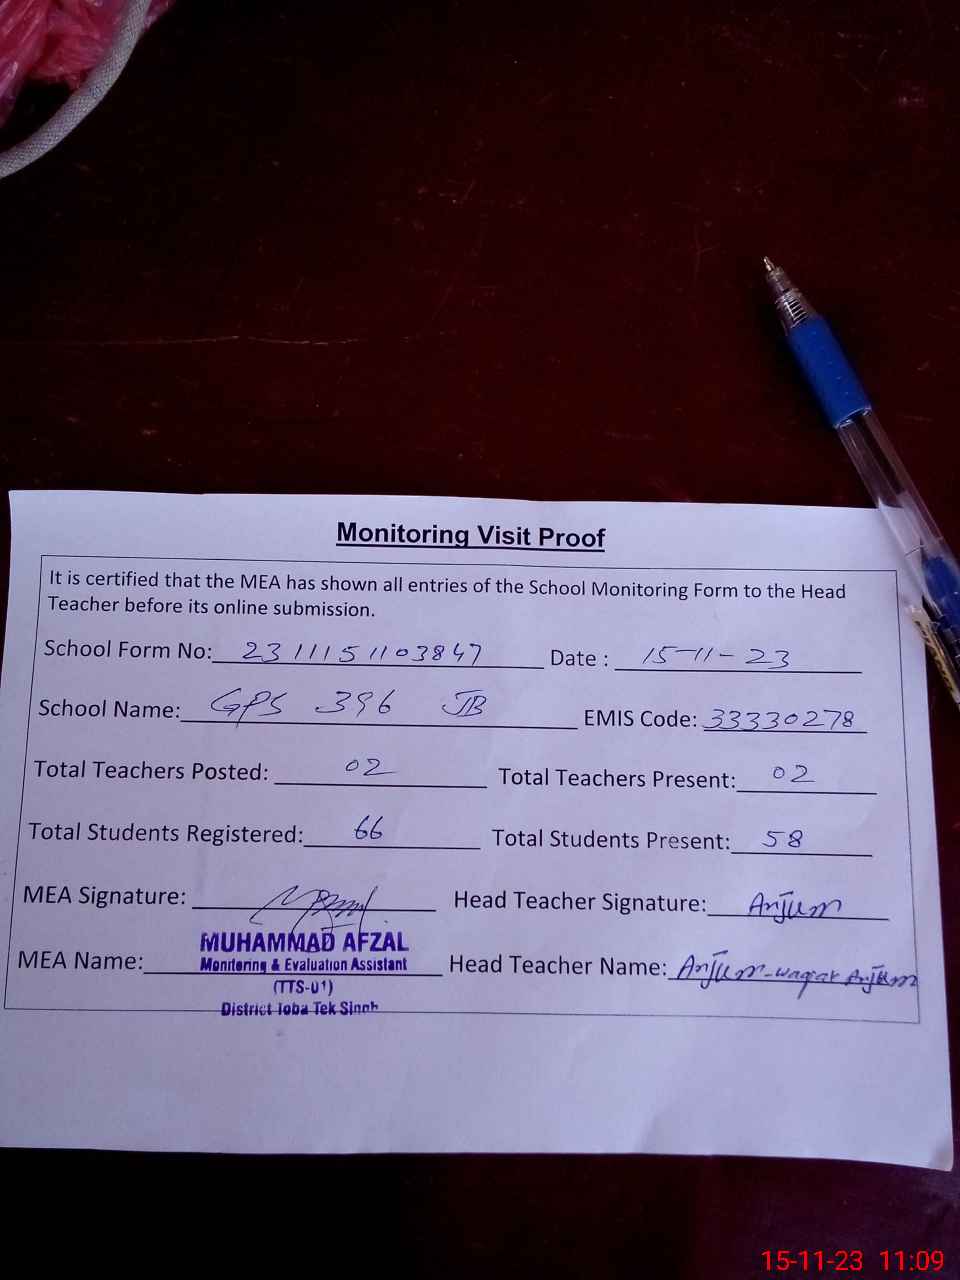 Monitoring Visit Proof
It is certified that the MEA has shown all entries of the School Monitoring Form to the Head
Teacher before its online submission.
School Form No: 2311151103847 Date : 15-11-23
School Name: GPS 396 JB EMIS Code: 33330278
Total Teachers Posted: 02 Total Teachers Present: 02
Total Students Registered: 66 Total Students Present: 58
MEA Signature: Head Teacher Signature: Anjum
MEA Name: MUHAMMAD AFZAL Head Teacher Name: Anjum-waqar Anjum
Monitoring & Evaluation Assistant
(TTS-01)
District Toba Tek Singh
15-11-23 11:09